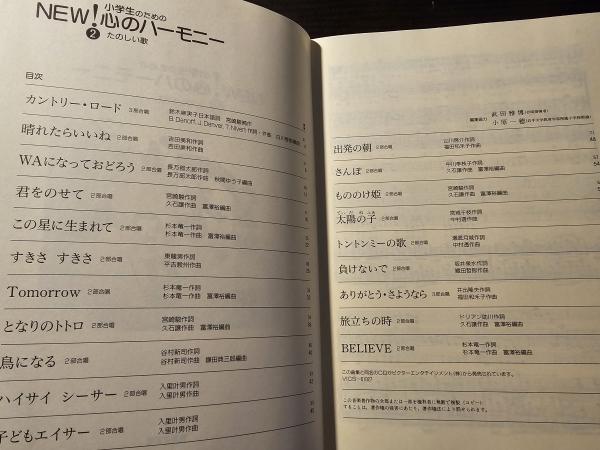 小学生のための
NEW!心のハーモニー
2 たのしい歌
目次
カントリー・ロード 3部合唱 鈴木麻実子日本語詞 宮崎駿補作
B.Danoff, J.Denver, T.Nivert 作詞・作曲
晴れたらいいね 2部合唱 吉田美和作詞
吉田美和作曲
WAになっておどろう 2部合唱 長万部太郎作詞
長万部太郎作曲 秋間ゆう子編曲
君をのせて 2部合唱 宮崎駿作詞
久石譲作曲 富澤裕編曲
この星に生まれて 2部合唱 杉本竜一作詞
杉本竜一作曲 富澤裕編曲
すきさ すきさ 2部合唱 東龍男作詞
平吉毅州作曲
Tomorrow 2部合唱 杉本竜一作詞
杉本竜一作曲 富澤裕編曲
となりのトトロ 2部合唱 宮崎駿作詞
久石譲作曲 富澤裕編曲
鳥になる 2部合唱 谷村新司作詞
谷村新司作曲 鎌田典三郎編曲
ハイサイ シーサー 2部合唱 入里叶男作詞
入里叶男作曲
子どもエイサー 2部合唱 入里叶男作詞
入里叶男作曲
編集協力 武田雅博
小原一穂
出発の朝 2部合唱
福田和禾子作曲
さんぽ 2部合唱 中川李枝子作詞
久石譲作曲 富澤裕編曲
もののけ姫 2部合唱 宮崎駿作詞
久石譲作曲 富澤裕編曲
太陽の子 2部合唱
トントンミーの歌 2部合唱
中村透作曲
負けないで 2部合唱 坂井泉水作詞
織田哲郎作曲
ありがとう・さようなら 3部合唱 井出隆夫作詞
福田和禾子作曲
旅立ちの時 2部合唱 ドリアン助川作詞
久石譲作曲 富澤裕編曲
BELIEVE 2部合唱 杉本竜一作詞
杉本竜一作曲 富澤裕編曲
この曲集と同名のCDがビクターエンタテインメント(株)から発売されています。
この音楽著作物の全部または一部を権利者に無断で複製(コピー)
することは、著作権の侵害にあたり、著作権法により罰せられます。